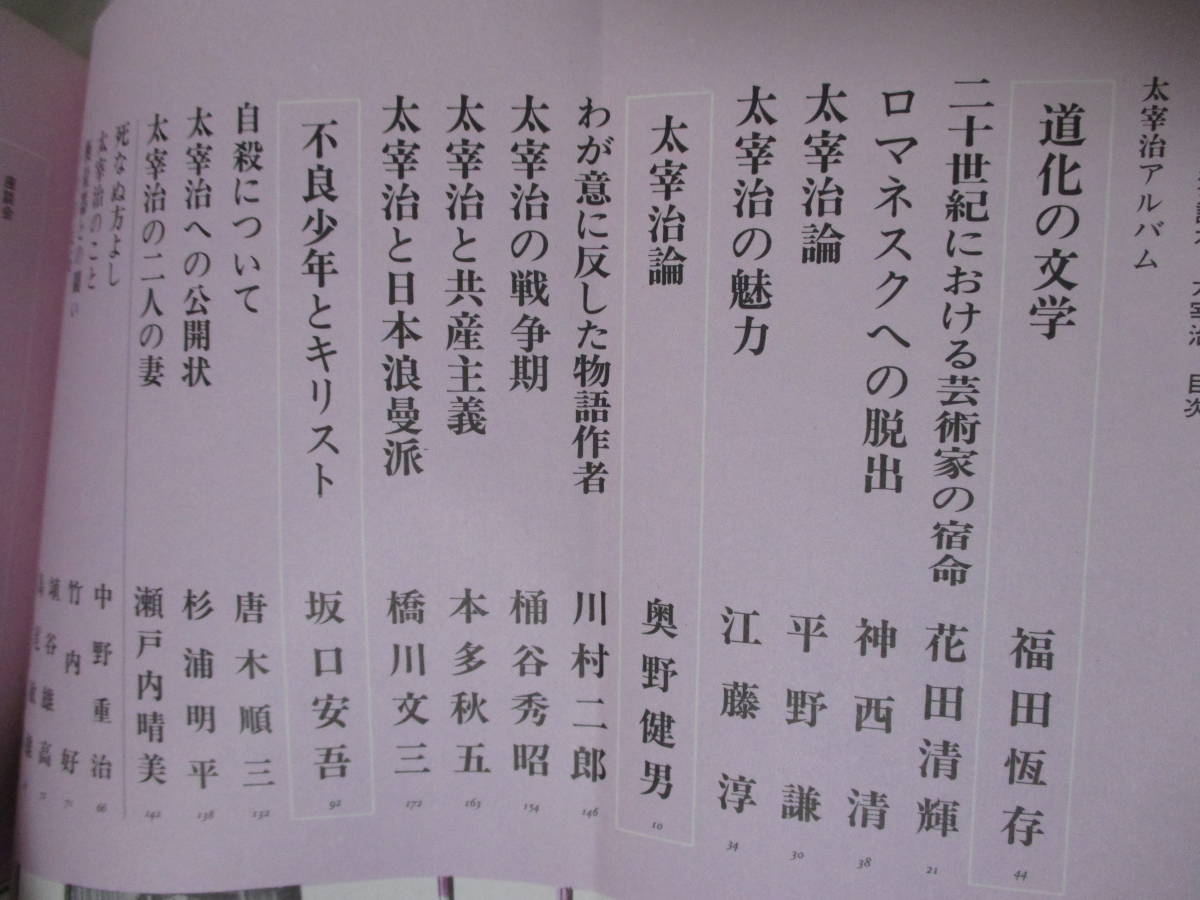 太宰治 目次
太宰治アルバム
道化の文学 福田恆存 44
二十世紀における芸術家の宿命 花田清輝 21
ロマネスクへの脱出 神西清 38
太宰治論 平野謙 30
太宰治の魅力 江藤淳 34
太宰治論 奥野健男 10
わが意に反した物語作者 川村二郎 146
太宰治の戦争期 桶谷秀昭 154
太宰治と共産主義 本多秋五 163
太宰治と日本浪曼派 橋川文三 172
不良少年とキリスト 坂口安吾 92
自殺について 唐木順三 132
太宰治への公開状 杉浦明平 138
太宰治の二人の妻 瀬戸内晴美 142
死なぬ方よし 中野重治 66
太宰治のこと 竹内好 71
埴谷雄高
座談会